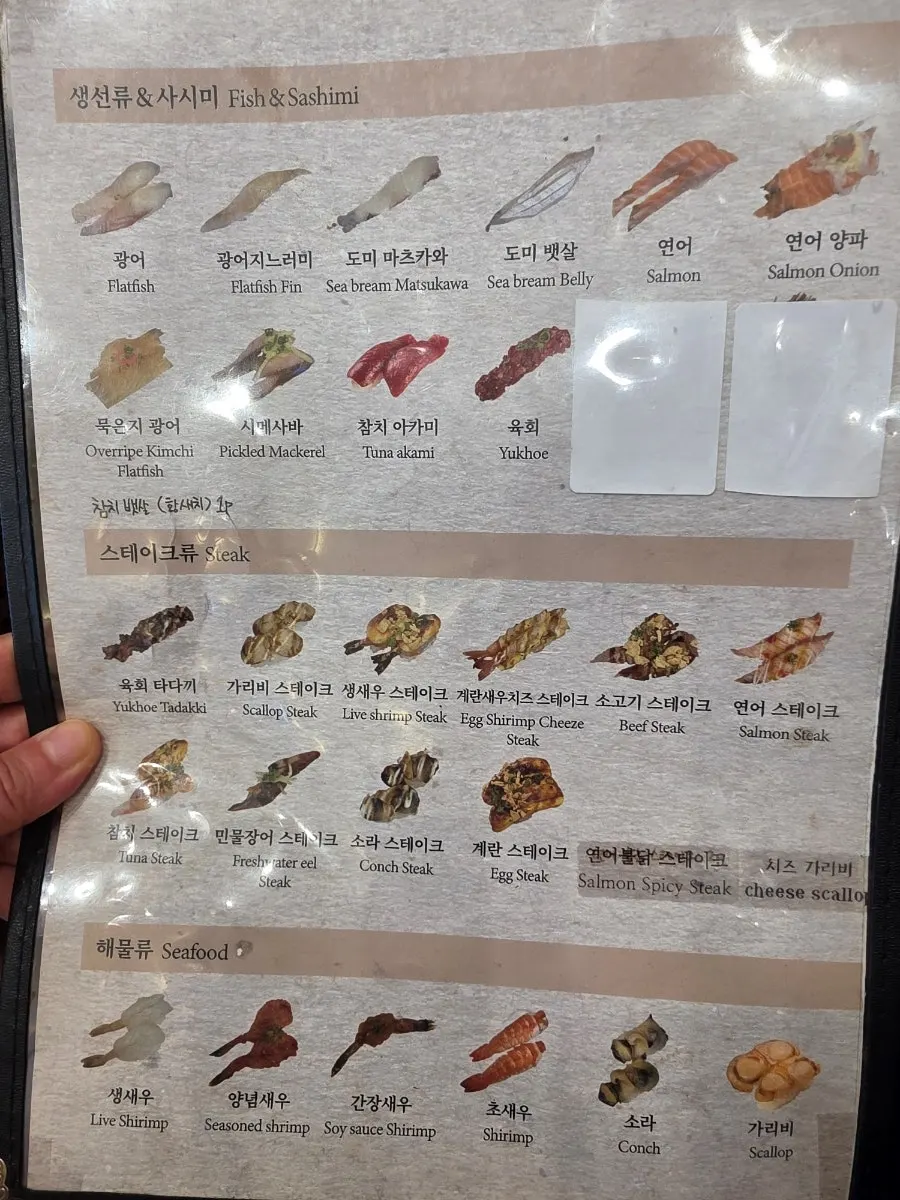 생선류&사시미 Fish & Sashimi
광어
Flatfish
광어지느러미
Flatfish Fin
도미 마츠카와
Sea bream Matsukawa
도미 뱃살
Sea bream Belly
연어
Salmon
연어 양파
Salmon Onion
묵은지 광어
Overripe Kimchi
Flatfish
시메사바
Pickled Mackerel
참치 아카미
Tuna akami
육회
Yukhoe
참치 뱃살 (황새치) 1p
스테이크류 Steak
육회 타다끼
Yukhoe Tadakki
가리비 스테이크
Scallop Steak
생새우 스테이크
Live shrimp Steak
계란새우치즈 스테이크
Egg Shirimp Cheeze
Steak
소고기 스테이크
Beef Steak
연어 스테이크
Salmon Steak
참치 스테이크
Tuna Steak
민물장어 스테이크
Freshwater eel
Steak
소라 스테이크
Conch Steak
계란 스테이크
Egg Steak
연어불닭 스테이크
Salmon Spicy Steak
치즈 가리비
cheese scallop
해물류 Seafood
생새우
Live Shirimp
양념새우
Seasoned shrimp
간장새우
Soy sauce Shirimp
초새우
Shirimp
소라
Conch
가리비
Scallop